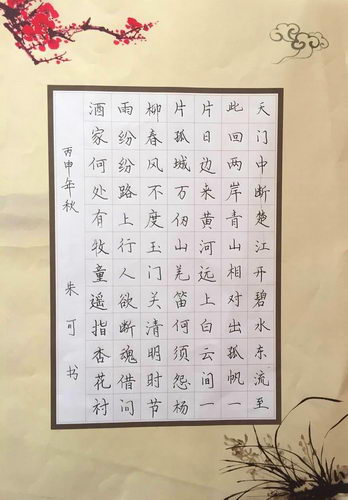 天门中断楚江开碧水东流至
此回两岸青山相对出孤帆一
片日边来黄河远上白云间一
片孤城万仞山羌笛何须怨杨
柳春风不度玉门关清明时节
雨纷纷路上行人欲断魂借问
酒家何处有牧童遥指杏花村
丙申年秋 朱可书